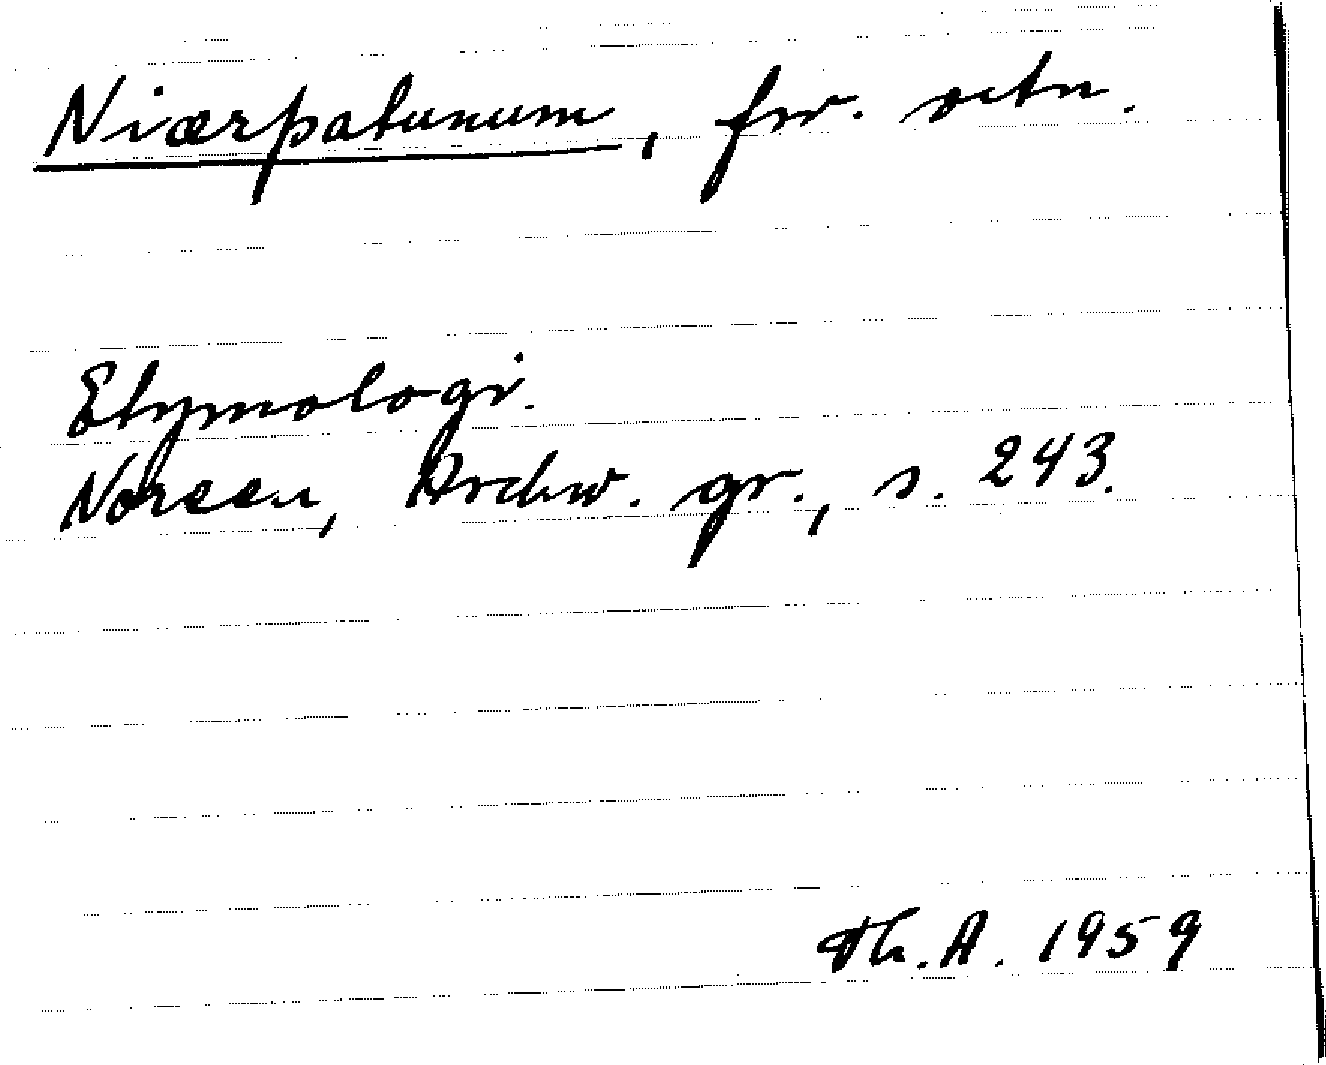 Niærþatunum, fsv. ortn.
Etymologi.
Noreen, Aschw. gr., s. 243.
Th. A. 1959